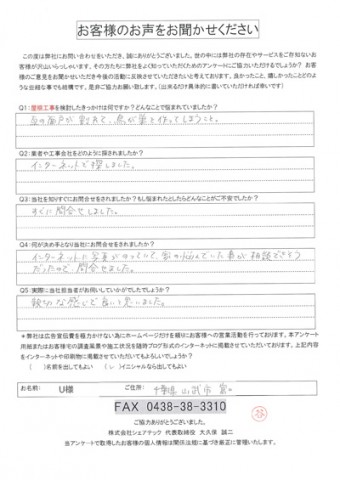 お客様のお声をお聞かせください
この度は弊社にお問い合わせをいただき、誠にありがとうございました。世の中には弊社の存在やサービスをご存知ないお
客様が沢山いらっしゃいます。その方たちに弊社をよく知っていただくためのアンケートにご協力いただけるでしょうか？お客
様のご意見をお聞かせいただき今後の活動に反映させていただきたいと考えております。良かったこと、嬉しかったことどの
ような些細な事でも結構です。是非ご協力お願い致します。(出来るだけ具体的に書いていただければ幸いです)
Q1:屋根工事を検討したきっかけは何ですか？どんなことで悩まれていましたか？
鳥が巣を作ってしまうこと。
Q2:業者や工事会社をどのように探されましたか？
インターネットで探しました。
Q3:当社を知りすぐにお問合せをされましたか？もし悩まれたとしたらどんなことがご不安でしたか？
すぐに問合せしました。
Q4:何が決め手となり当社にお問合せをされましたか？
インターネットに写真がのっていて、家の悩んでいた事が相談できそう
だったので、問合せました。
Q5:実際に当社担当者がお伺いしていかがでしたでしょう？
親切な感じで良いと思いました。
＊弊社は広告宣伝費を極力かけない為にホームページだけを頼りにお客様への営業活動を行っております。本アンケート
用紙またはお客様宅の調査風景や施工状況を随時ブログ形式のインターネットに掲載させていただいております。上記内容
をインターネットや印刷物に掲載させていただいてもよろしいでしょうか？
( )名前を出してもよい ( )イニシャルなら出してもよい
お名前: U様 ご住所: 千葉県山武市
FAX 0438-38-3310
ご協力ありがとうございました。
株式会社シェアテック 代表取締役 大久保 誠二
当アンケートで取得したお客様の個人情報は関係法規に基づき厳正に管理いたします。